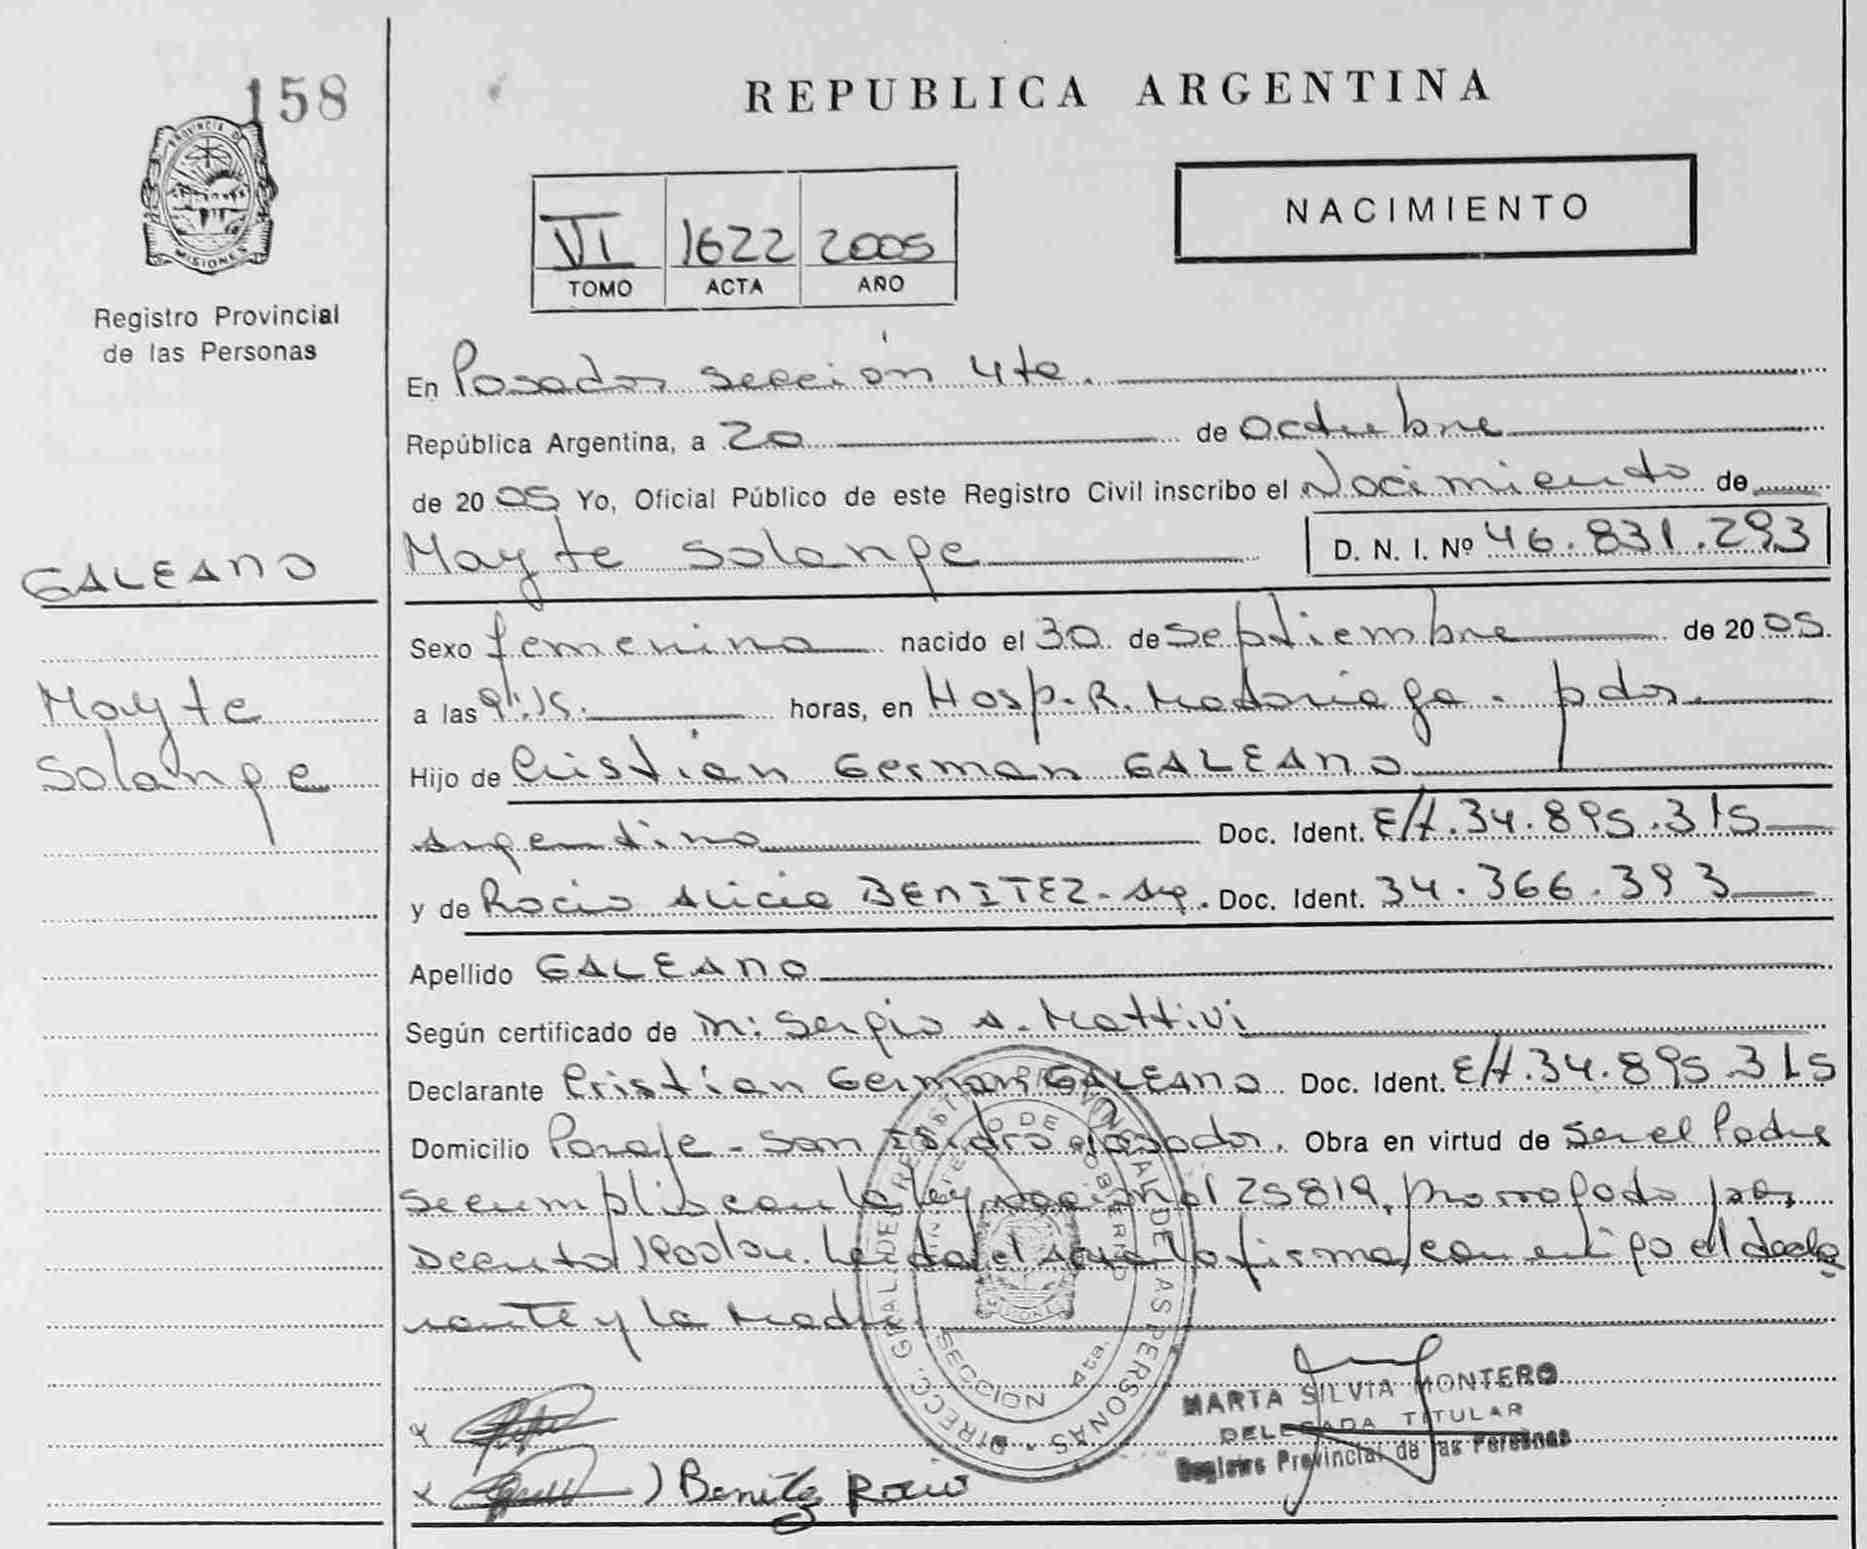 158
REPUBLICA ARGENTINA
PROVINCIA DE
MISIONES
Registro Provincial
de las Personas
VI 1622 2005
TOMO ACTA AÑO
NACIMIENTO
En Posadas sección 4ta.
República Argentina, a 20 de octubre
de 2005 Yo, Oficial Público de este Registro Civil inscribo el Nacimiento de
GALEANO
Mayte Solange D. N. I. Nº 46.831.293
Sexo femenino nacido el 30 de septiembre de 2005.
Mayte
Solange
a las 9:15. horas, en Hosp. R. Madariaga - pdas.
Hijo de Cristian German GALEANO
Argentino Doc. Ident. E/t. 34.895.315
y de Rocio Alicia BENITEZ - Arg. Doc. Ident. 34.366.393
Apellido GALEANO
Según certificado de M: Sergio A. Mattivi
Declarante Cristian German GALEANO Doc. Ident. E/t. 34.895.315
Domicilio Paraje - San Isidro Posadas. Obra en virtud de ser el Padre
se cumplio con la ley nacional 25819, prorrogado por
Decreto Leida el acta la firma conmigo el decla
rante y la Madre
DIRECC. GRAL. DE REGISTRO PROVINCIAL DE LAS PERSONAS
MINISTERIO DE GOBIERNO
MISIONES
SECCION 4ta.
MARTA SILVIA MONTERO
DELEGADA TITULAR
Registro Provincial de las Personas
Benitez Rocio